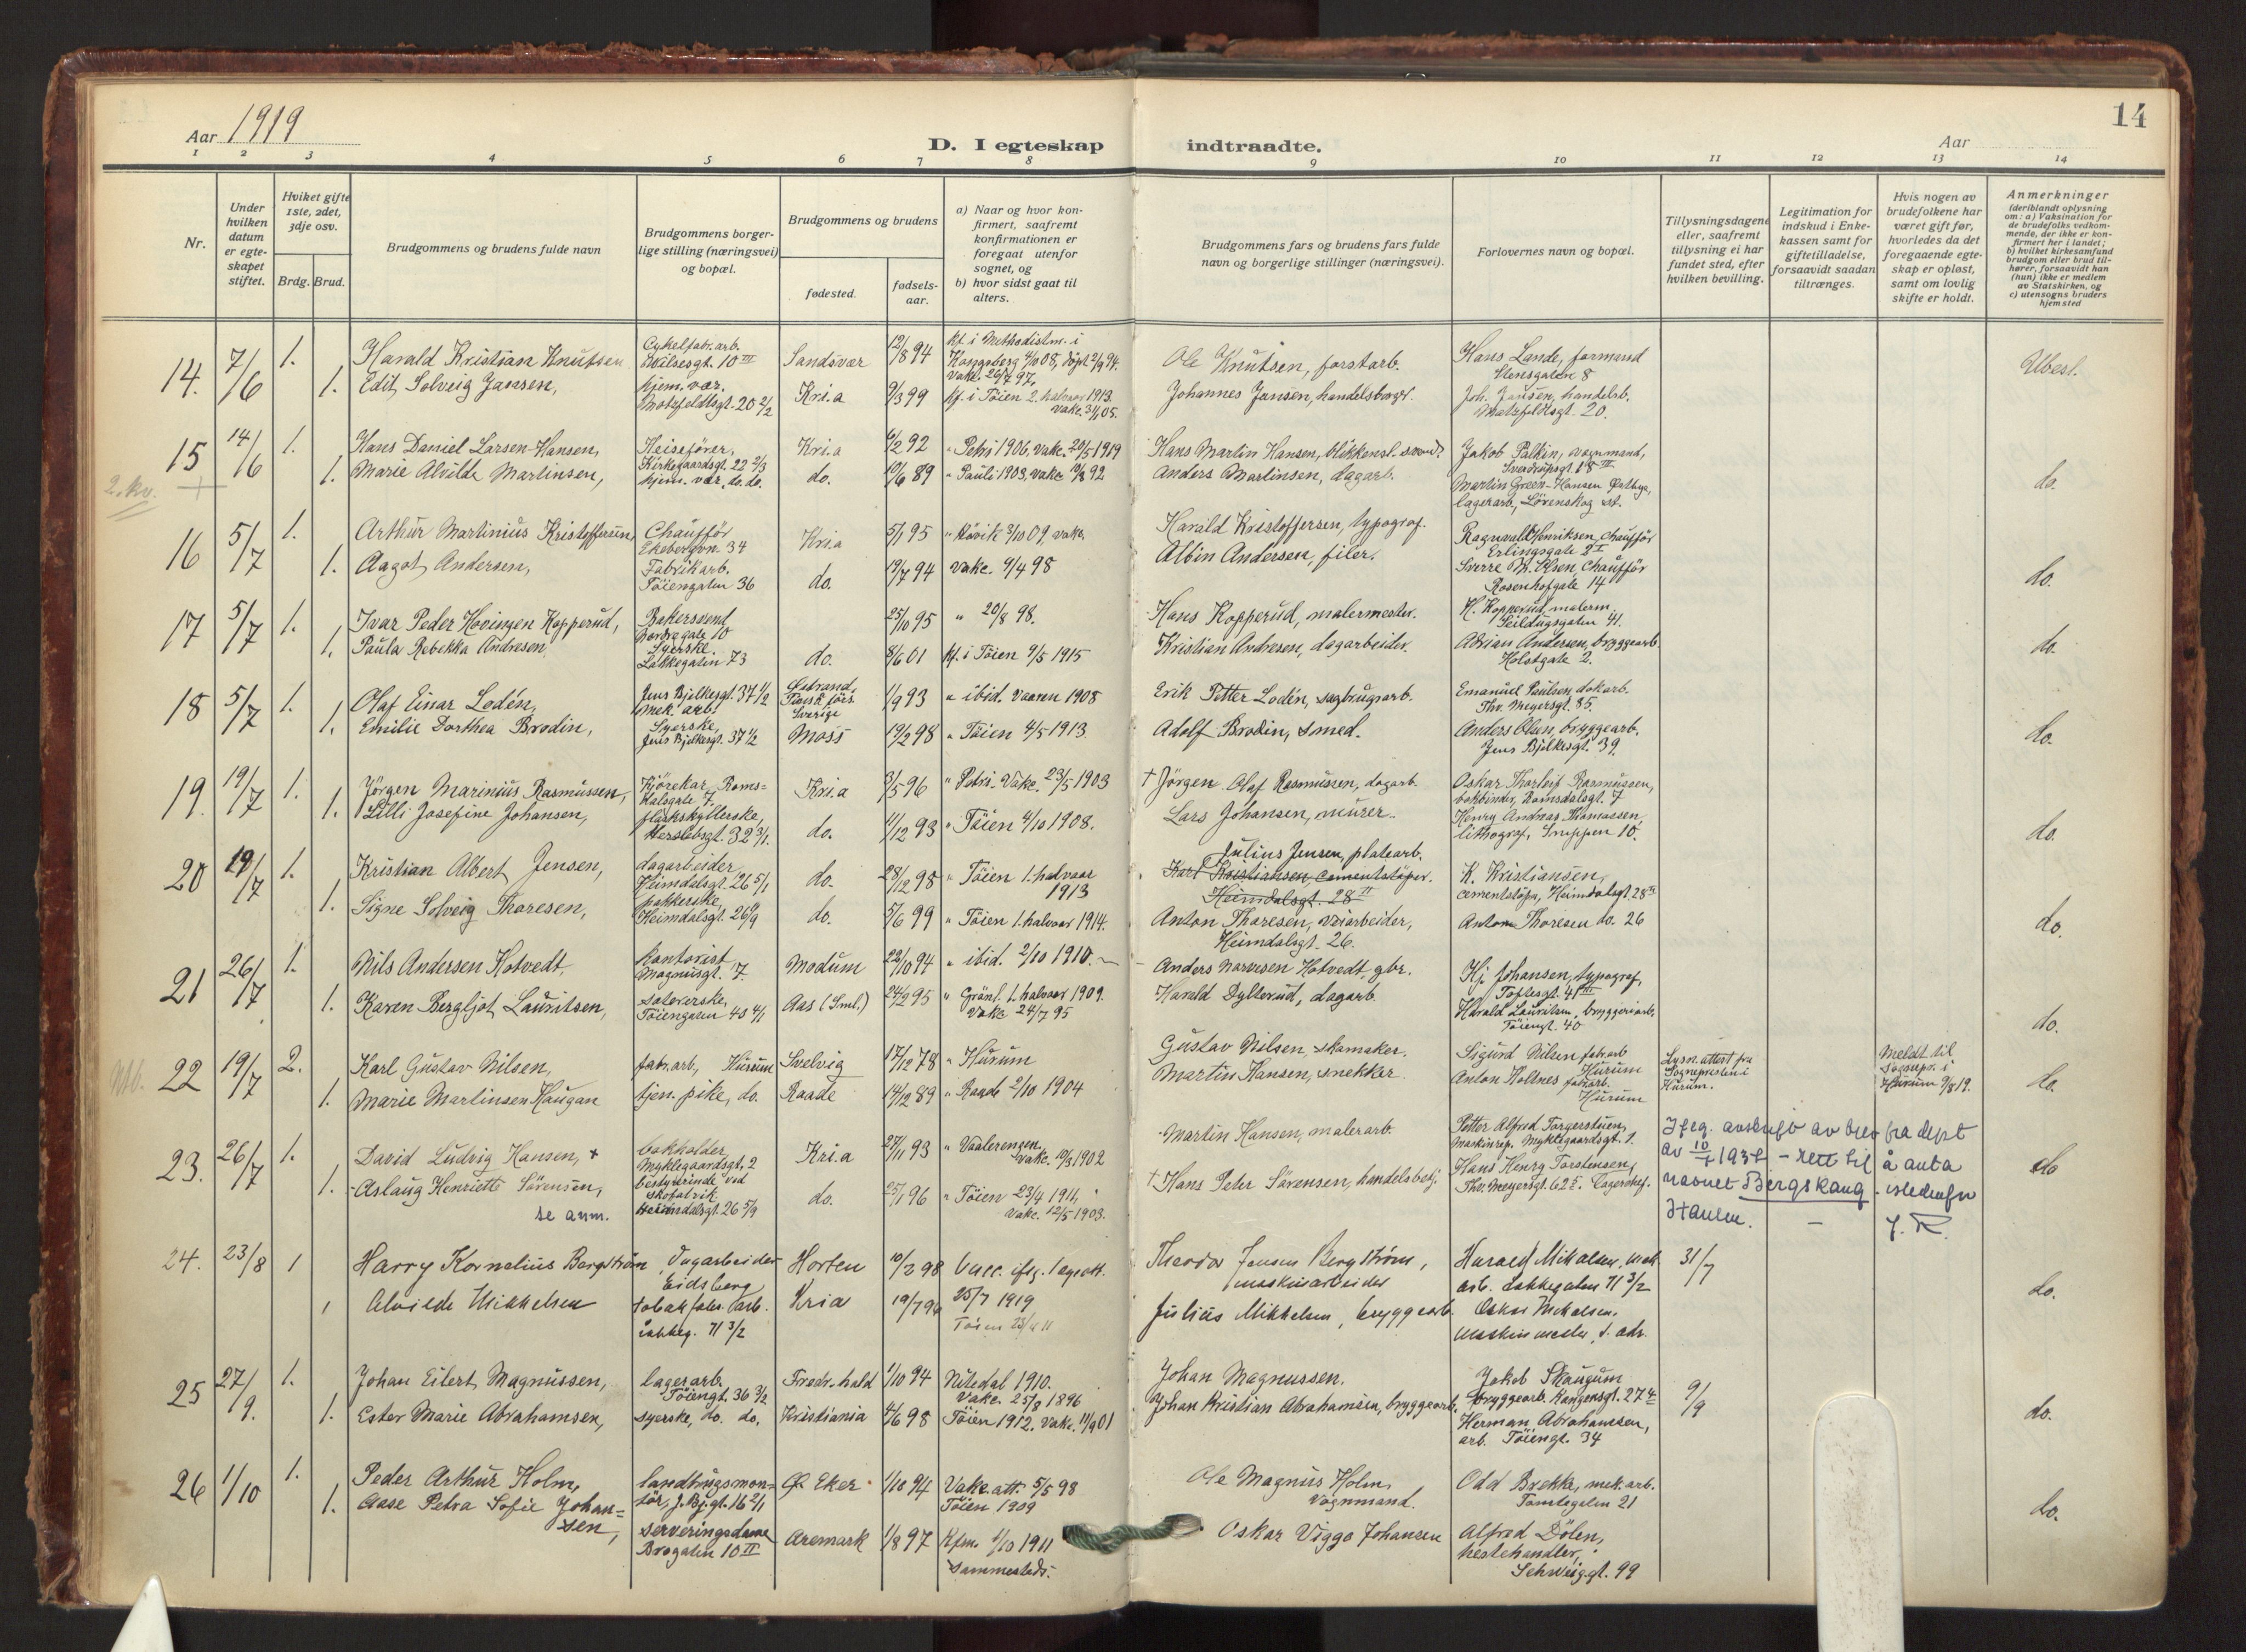 14
Aar 1919
D. I egteskap indtraadte.
Aar
1 2 3 4 5 6 7 8 9 10 11 12 13 14
Nr.
Under hvilken datum er egteskapet stiftet.
Hviket gifte 1ste, 2det, 3dje osv.
Brdg. Brud.
Brudgommens og brudens fulde navn
Brudgommens borgerlige stilling (næringsvei) og bopæl.
Brudgommens og brudens
fødested.
fødsels-aar.
a) Naar og hvor konfirmert, saafremt konfirmationen er foregaat utenfor sognet, og
b) hvor sidst gaat til alters.
Brudgommens fars og brudens fars fulde navn og borgerlige stillinger (næringsvei).
Forlovernes navn og bopæl.
Tillysningsdagene eller, saafremt tillysning ei har fundet sted, efter hvilken bevilling.
Legitimation for indskud i Enkekassen samt for giftetilladelse, forsaavidt saadan tiltrænges.
Hvis nogen av brudefolkene har været gift før, hvorledes da det foregaaende egteskap er opløst, samt om lovlig skifte er holdt.
Anmerkninger
(deriblandt oplysning om: a) Vaksination for de brudefolks vedkommende, der ikke er konfirmert her i landet; b) hvilket kirkesamfund brudgom eller brud tilhører, forsaavidt han (hun) ikke er medlem av Statskirken, og c) utensogns bruders hjemsted
14. 7/6 1. Harald Kristian Knutsen Cykelfabr.arb. 10 III Sandsvær 12/8 94 Kf. i Methodistm. i Kongsberg 4/10 08, døpt 2/9 94. Vakc. 26/7 97. Ole Knutsen, forstarb. Hans Lande, formand Stensgaten 8 Ubest.
1. Edit Solveig Jansen, hjem. vær. Motzfeldtsgt. 20 2/2 Kri.a 9/3 99 kf. i Tøien 2. halvaar 1913. Vakc. 3/1 05. Johannes Jansen, handelsborger. Joh. Jansen, handelsb. Motzfeldtsgt. 20.
15 14/6 1. Hans Daniel Larsen-Hansen, Heisefører, Kirkegaardsgt. 22 2/3 Kri.a 6/2 92 " Petri 1906, vakc. 20/5 1919 Hans Martin Hansen, blikkensl. svend. Jakob Palkin, vognmand, Sverdrupsgt. 18 III do.
2. kv.
1. Marie Alvilde Martinsen, hjem. vær. do. do. do. 10/6 89 " Pauli 1903, vakc. 10/8 92 Anders Martinsen, dagarb. Martin Green-Hansen Østbye, lagerarb., Lørenskog st.
16 5/7 1. Arthur Martinius Kristoffersen, Chauffør Ekebergvn. 34 Kri.a 5/1 95 " Høvik 3/10 09, vakc. Harald Kristoffersen, typograf. Ragnvald Henriksen, chauffør Erlingsgate 2 I do.
1. Aagot Andersen, Fabrikarb. Tøiengaten 36 do. 19/7 94 vakc. 9/4 98 Albin Andersen, filer. Sverre M. Olsen, chauffør Rosenhofgate 14
17 5/7 1. Ivar Peder Hovingen Kopperud, Bakersvend Nordregate 10 25/10 95 " 20/8 98. Hans Kopperud, malermester. H. Kopperud, malerm. Seildugsgaten 41. do.
1. Paula Rebekka Andresen Syerske. Lakkegaten 73 do. 8/6 01 kf. i Tøien 9/5 1915 Kristian Andresen, dagarbeider. Adrian Andersen, bryggearb. Holstgate 2.
18 5/7 1. Olaf Einar Lodén, Jens Bjelkesgt. 37 1/2 Mek. arb. Sverige 1/9 93 " ibid. Vaaren 1908 Erik Petter Lodén, sagbrugsarb. Emanuel Paulsen, dokarb. Thv. Meyersgt. 85. do.
1. Emilie Dorthea Brodin, Syerske, Jens Bjelkesgt. 37 1/2 Moss 19/2 98 " Tøien 4/5 1913 Adolf Brodin, smed. Anders Olsen, bryggearb. Jens Bjelkesgt. 39.
19. 19/7 1. Jørgen Marinius Rasmussen, Kjørekar, Romsdalsgate 7. Kri.a 3/5 96 " Petri. Vakc. 23/5 1903 † Jørgen Olaf Rasmussen, dagarb. Oskar Thorleif Rasmussen, bokbinder, Romsdalsgt. 7 do.
1. Lilli Josefine Johansen, flaskskyllerske, Herslebsgt. 32 3/1. do. 11/12 93 " Tøien 4/10 1908. Lars Johansen, murer. Henry Andreas Thomassen, lithograf, Snippen 10.
20 19/7 1. Kristian Albert Jensen, dagarbeider, Heimdalsgt. 26 5/1 do. 28/12 98 " Tøien 1. halvaar 1913 Julius Jensen, platearb. Karl Kristiansen, cementstøper. Heimdalsgt. 28 II K. Kristiansen, cementstøper, Heimdalsgt. 28 II do.
1. Signe Solveig Thoresen, pakkerske, Heimdalsgt. 26 9/9 do. 5/6 99 " Tøien 1. halvaar 1914. Anton Thoresen, veiarbeider, Heimdalsgt. 26. Anton Thoresen do. 26
21 26/7 1. Nils Andersen Hotvedt Kontorist Magnusgt. 7. Modum 22/10 94 " ibid. 2/10 1910. Anders Narvesen Hotvedt, gbr. Hj. Johansen, typograf, Toftesgt. 41 III do.
1. Karen Bergljot Lauritsen, Tøiengaten 40 4/1 Aas (Sml.) 24/2 95 " Grønl. 1. halvaar 1909. Vakc 24/7 95 Harald Dylterud, dagarb. Harald Lauritsen, bryggeriarb. Tøiengt. 40
22 19/7 2. Karl Gustav Nilsen, fabr.arb, Hurum Svelvig 17/12 78 " Hurum Gustav Nilsen, skomaker. Sigurd Nilsen fabr.arb Hurum Lysn. attest fra Sognepresten i Hurum. Meldt til Sognepr. i Hurum 9/8 19. do.
1. Marie Martinsen Haugan tjen. pike, do. Raade 14/12 89 " Raade 2/10 1904 Martin Hansen, snekker. Anton Holtnes fabr.arb. Hurum
23. 26/7 1. David Ludvig Hansen, + bokholder, Myklegaardsgt. 2 Kri.a 27/11 93 " Vaalerengen. Vakc. 10/3 1902 Martin Hansen, malerarb. Petter Alfred Torgerstuen, Maskinrep. Myklegaardsgt. 1. do
1. Aslaug Henriette Sørensen, bestyrerinde ved skofabrik Heimdalsgt. 26 5/9 do. 25/1 96 " Tøien 23/4 1911, Vakc. 12/5 1903. † Hans Peter Sørensen, handelsbetj. Hans Henry Torstensen, Thv. Meyersgt. 62 Lagereksp.
se anm.
Ifølg. avskrift av brev fra dept av 10/7 1937 - rett til å anta navnet Bergskaug istedenfor Hansen.
24. 23/8 1 Harry Kornelius Bergstrøm Dagarbeider Eidsberg Horten 10/2 98 Vacc. ifølg. legeatt. 25/7 1919 Theodor Jensen Bergstrøm, maskinarbeider Harald Mikalsen, mek arb. Lakkegaten 71 3/2 31/7 do.
1 Alvilde Mikkelsen tobakfabr. arb. Lakkeg. 71 3/2 Kria 19/7 94 Tøien 23/4 11 Julius Mikkelsen, bryggearb. Oskar Mikalsen, Maskinmester, s. adr.
25 27/9. 1. Johan Eilert Magnussen, lagerarb. Tøiengt. 36 3/2 Fredr.hald 1/10 94 Nitedal 1910. Vakc. 25/9 1896 Johan Magnussen. Jakob Skaugum bryggearb. Kangensgt. 27 9/9 do.
1. Ester Marie Abrahamsen, syerske, do. do. Kristiania 4/6 98 Tøien 1912. Vakc. 11/9 01 Johan Kristian Abrahamsen, bryggearb. Herman Abrahamsen, arb. Tøiengt. 34
26 1/10 1. Peder Arthur Holm, landbrugsmontør, J. Bj.gt. 16 2/1 Ø Eker 1/10 94 Vakc. att. 5/5 98 Tøien 1909 Ole Magnus Holm, Vognmand. Odd Brekke, mek. arb. Tomtegaten 21 do.
1. Aase Petra Sofie Johansen, serveringsdame Brogaten 10 II Aremark 1/8 97 Kfm. 1/10 1911 sammesteds. Oskar Viggo Johansen Alfred Dølen, hestehandler, Schweig.gt. 99